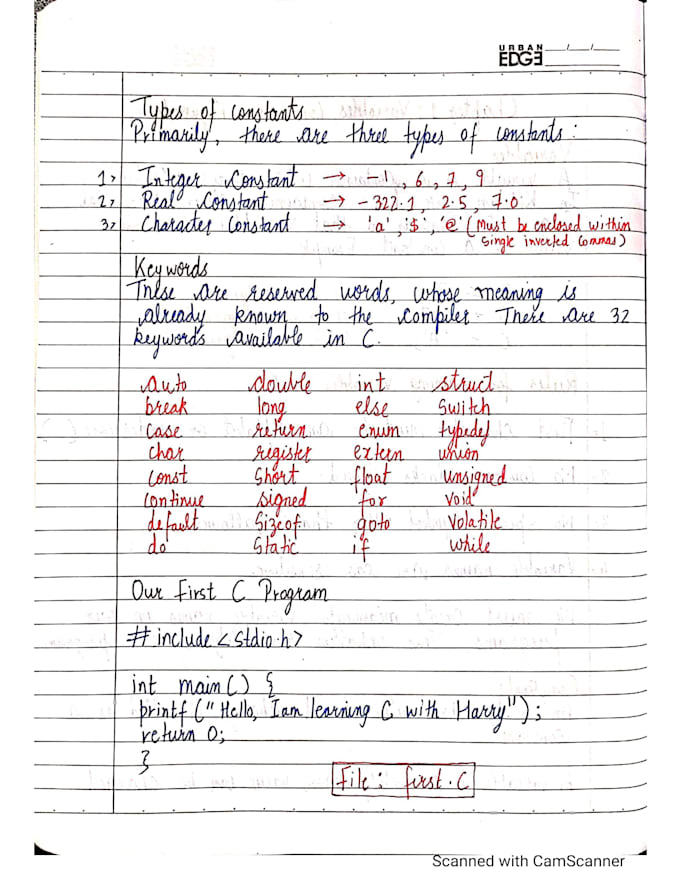 URBAN
EDGE
Types of constants
Primarily, there are three types of constants :
1> Integer Constant → -1, 6, 7, 9
2> Real Constant → -322.1, 2.5, 7.0
3> Character Constant → 'a', '$', '@' (Must be enclosed within
single inverted commas)
Keywords
These are reserved words, whose meaning is
already known to the compiler. There are 32
keywords available in C.
auto double int struct
break long else switch
case return enum typedef
char register extern union
const short float unsigned
continue signed for void
default sizeof goto volatile
do static if while
Our First C Program
#include <stdio.h>
int main() {
printf ("Hello, I am learning C with Harry");
return 0;
}
File : first.C
Scanned with CamScanner